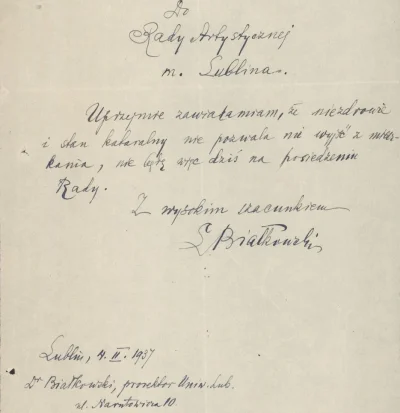 Do
Rady Artystycznej
m. Lublina.
Uprzejmie zawiadamiam, że niezdrowie
i stan kataralny nie pozwala mi wyjść z miesz-
kania, nie będę więc dziś na posiedzeniu
Rady.
Z wysokim szacunkiem
L Białkowski
Lublin, 4. II. 1937
Dr Białkowski, prorektor Uniw. Lub.
ul. Narutowicza 10.